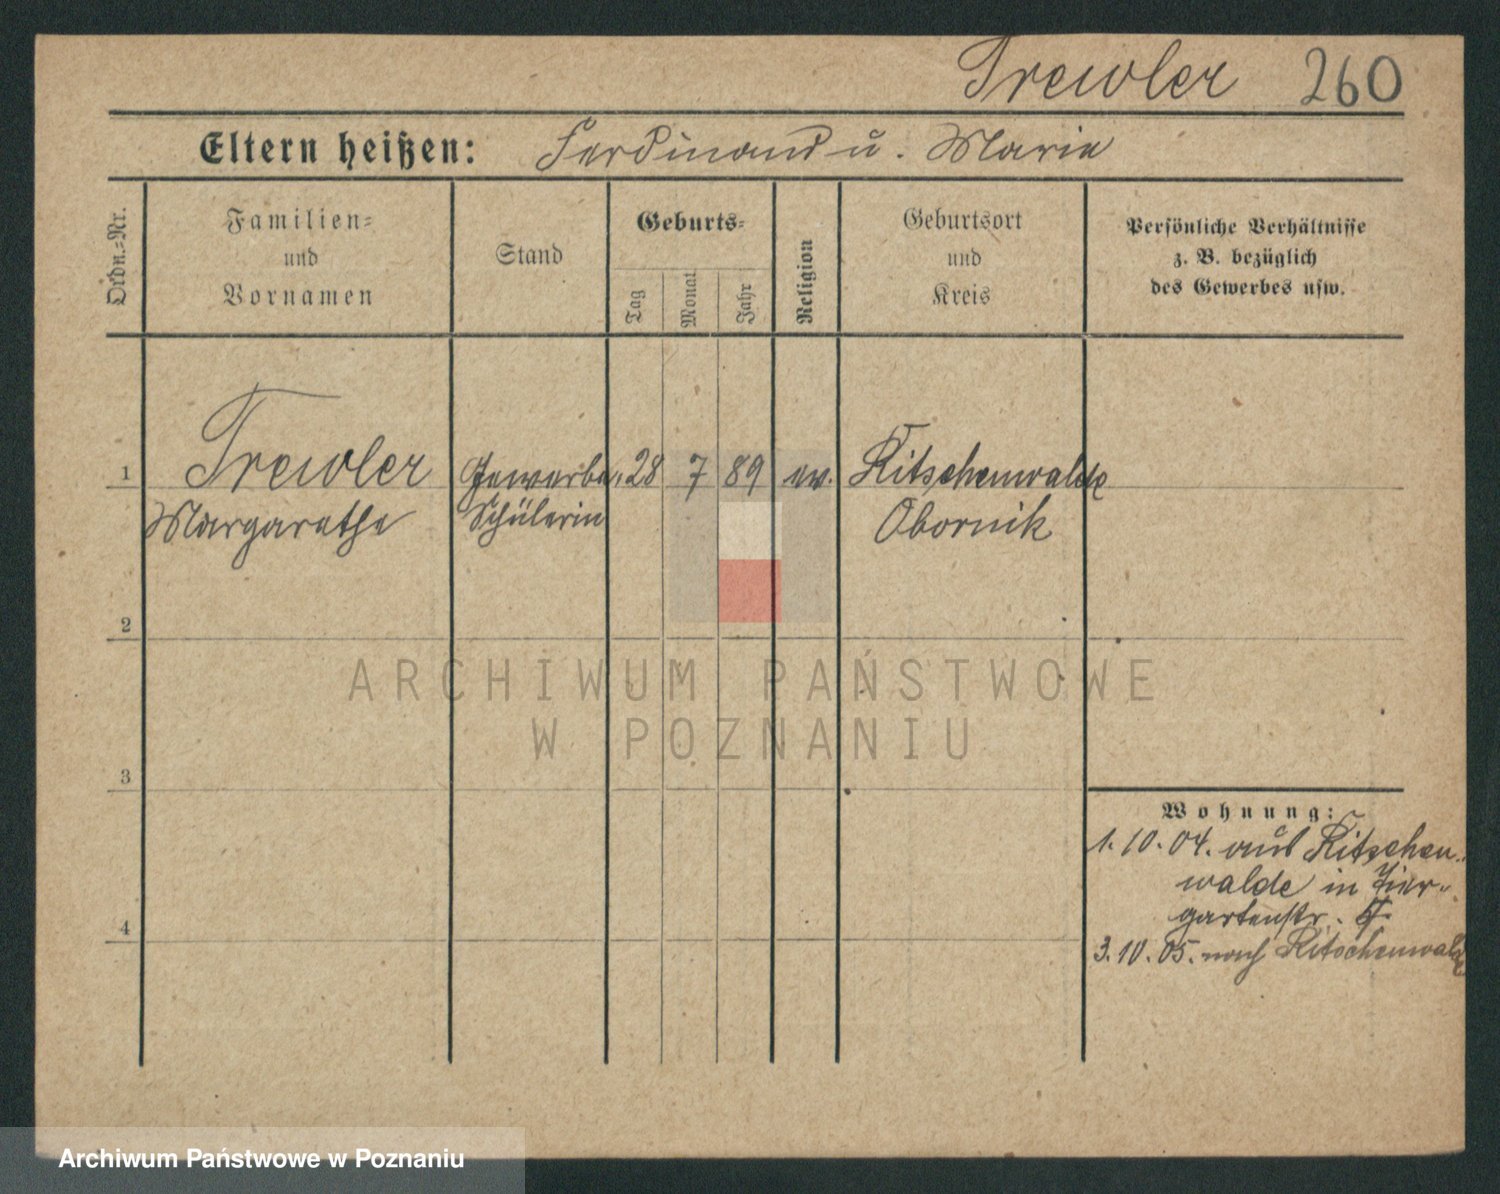 Trewler 260
Eltern heißen: Ferdinand u. Marie
Ordn.=Nr.
Familien=
und
Vornamen
Stand
Geburts=
Tag
Monat
Jahr
Religion
Geburtsort
und
Kreis
Persönliche Verhältnisse
z. B. bezüglich
des Gewerbes usw.
1 Trewler Gewerbe- 28 7 89 ev. Ritschenwalde
Margarethe Schülerin Obornik
2
3
4
Wohnung:
1.10.04. aus Ritschen-
walde in Tier-
gartenstr.
3.10.05. nach Ritschenwalde
ARCHIWUM PAŃSTWOWE
W POZNANIU
Archiwum Państwowe w Poznaniu